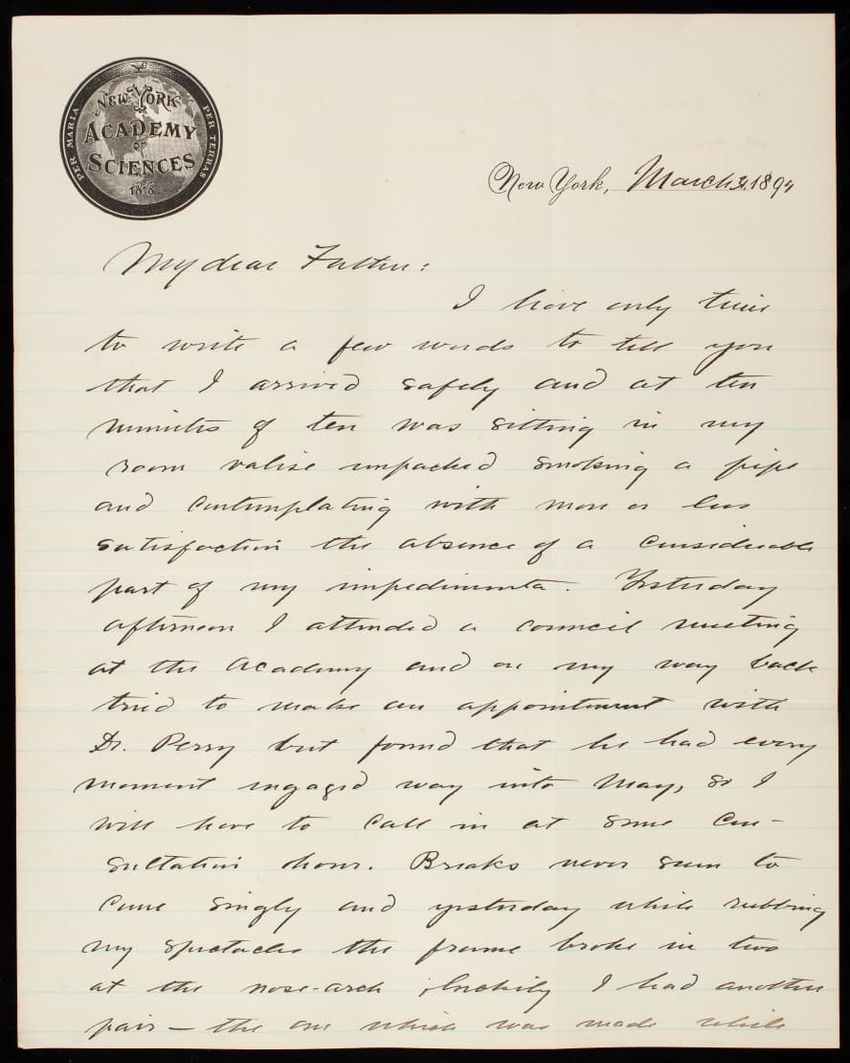 NEW YORK
ACADEMY
OF
SCIENCES
PER MARIA
PER TERRAS
New York, March 1894
My dear Father:
I have only time
to write a few words to tell you
that I arrived safely and at ten
minutes of ten was sitting in my
room valise unpacked smoking a pipe
and contemplating with more or less
satisfaction the absence of a considerable
part of my impedimenta. Yesterday
afternoon I attended a council meeting
at the Academy and on my way back
tried to make an appointment with
Dr. Perry but found that he had every
moment engaged way into May, so I
will have to call in at some con-
sultation hour. Breaks never seem to
come singly and yesterday while rubbing
my spectacles the frame broke in two
at the nose-arch; luckily I had another
pair — the one which was made while